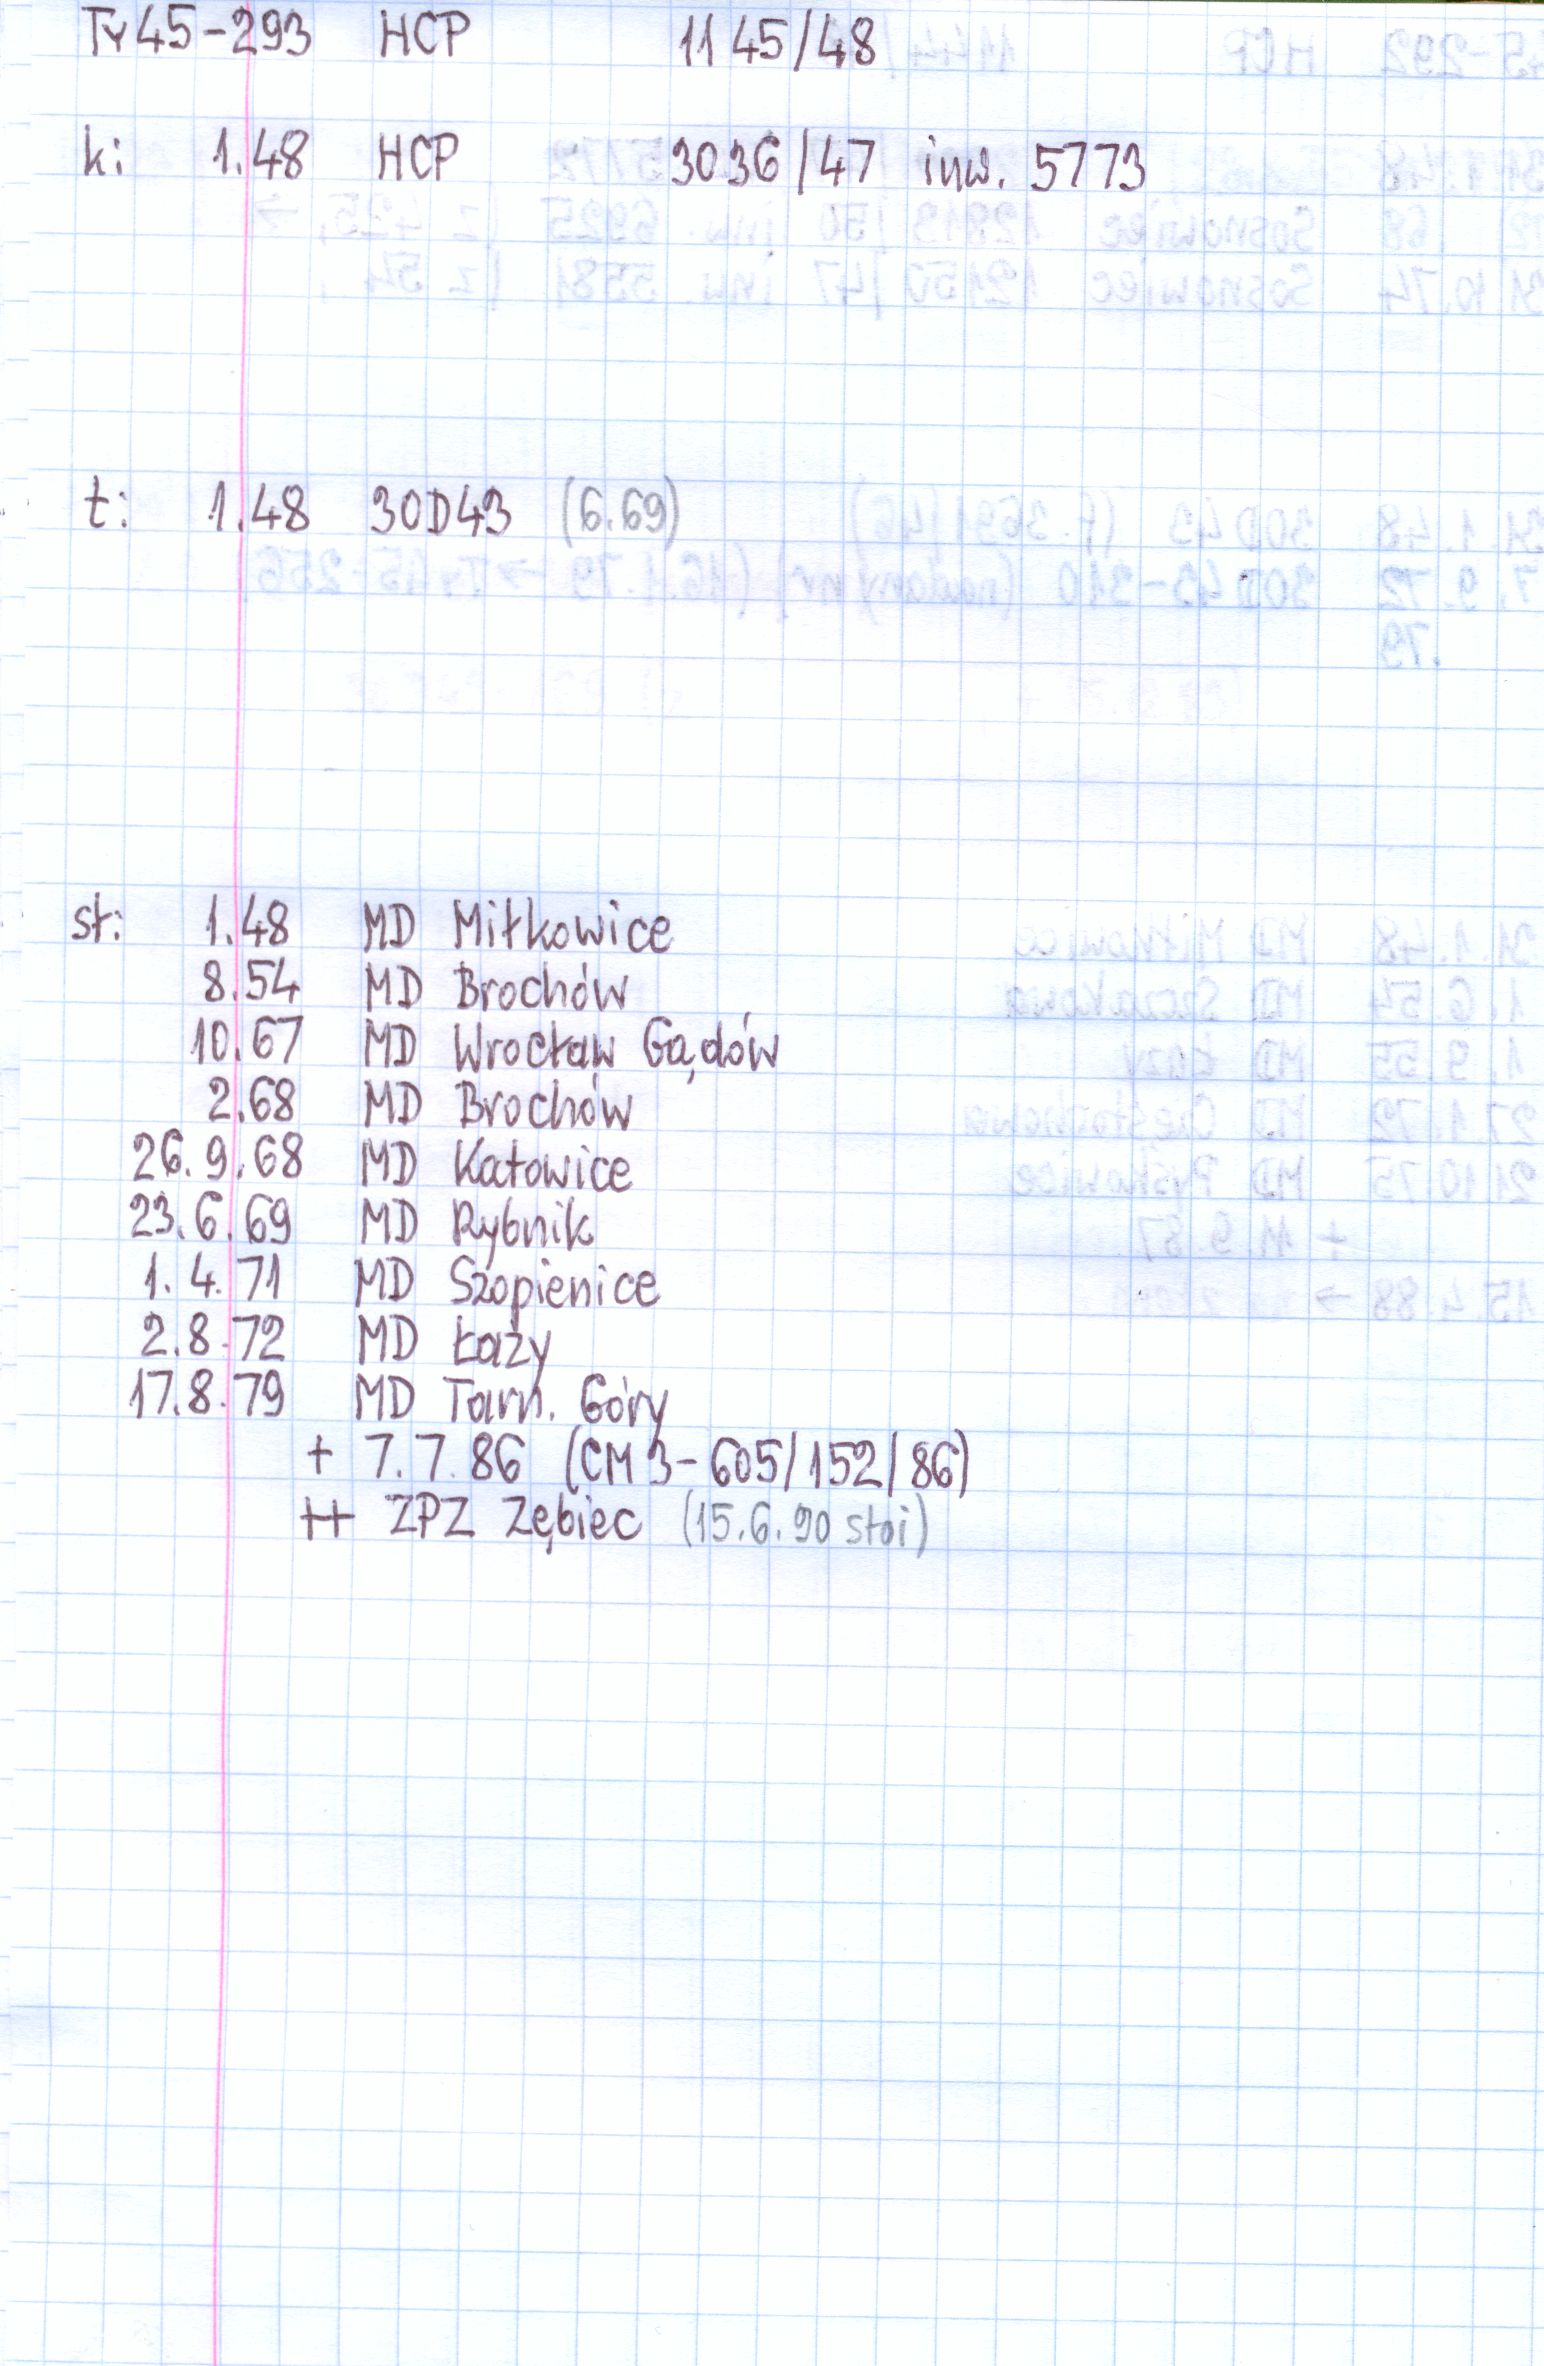 Ty45-293 HCP 1145/48
k: 1.48 HCP 3036/47 inw. 5773
t: 1.48 30D43 (6.69)
st: 1.48 MD Miłkowice
8.54 MD Brochów
10.67 MD Wrocław Gądów
2.68 MD Brochów
26.9.68 MD Katowice
23.6.69 MD Rybnik
1.4.71 MD Szopienice
2.8.72 MD Łazy
17.8.79 MD Tarn. Góry
+ 7.7.86 (CM3-605/152/86)
++ ZPZ Zębiec (15.6.90 stoi)